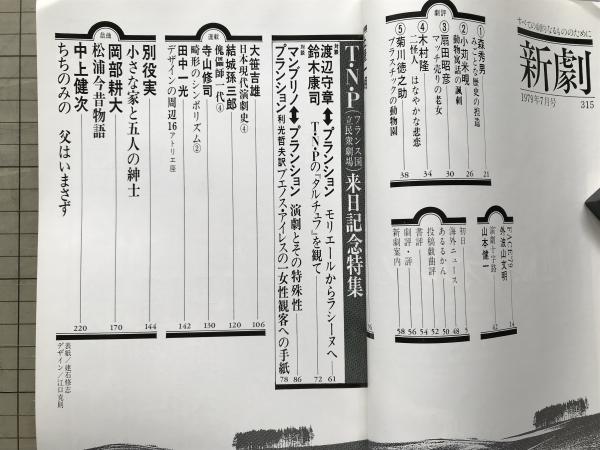 すべての劇的なるもののために
新劇
1979年7月号
315
劇評
①森秀男
みごとな歴史の捏造
21
②小苅米晛
動物寓話の諷刺
26
③扇田昭彦
マッチ売りの老女
30
④木村隆
二怪人 はなやかな悲恋
34
⑤菊川徳之助
プラスチックの動物園
38
FACE'79
外波山文明
14
演劇十字路
山本健一
42
初日
5
海外ニュース
48
あるるかん
50
投稿戯曲評
52
書評
54
劇評・評
56
新劇案内
58
T・N・P(フランス国立民衆劇場)来日記念特集
対談
渡辺守章⬌プランション モリエールからラシーヌへ
61
鈴木康司 T・N・Pの『タルチュフ』を観て
72
対談
マンブリノ⬌プランション 演劇とその特殊性
86
プランション 利光哲夫訳 ブエノス・アイレスの一女性観客への手紙
78
連載
大笹吉雄
日本現代演劇史④
106
結城孫三郎
傀儡師一代④
120
寺山修司
畸形のシンボリズム②
130
田中一光
デザインの周辺16 アトリエ座
142
戯曲
別役実
小さな家と五人の紳士
144
岡部耕大
松浦今昔物語
170
中上健次
ちちのみの 父はいまさず
220
表紙/建石修志
デザイン/江口克朗